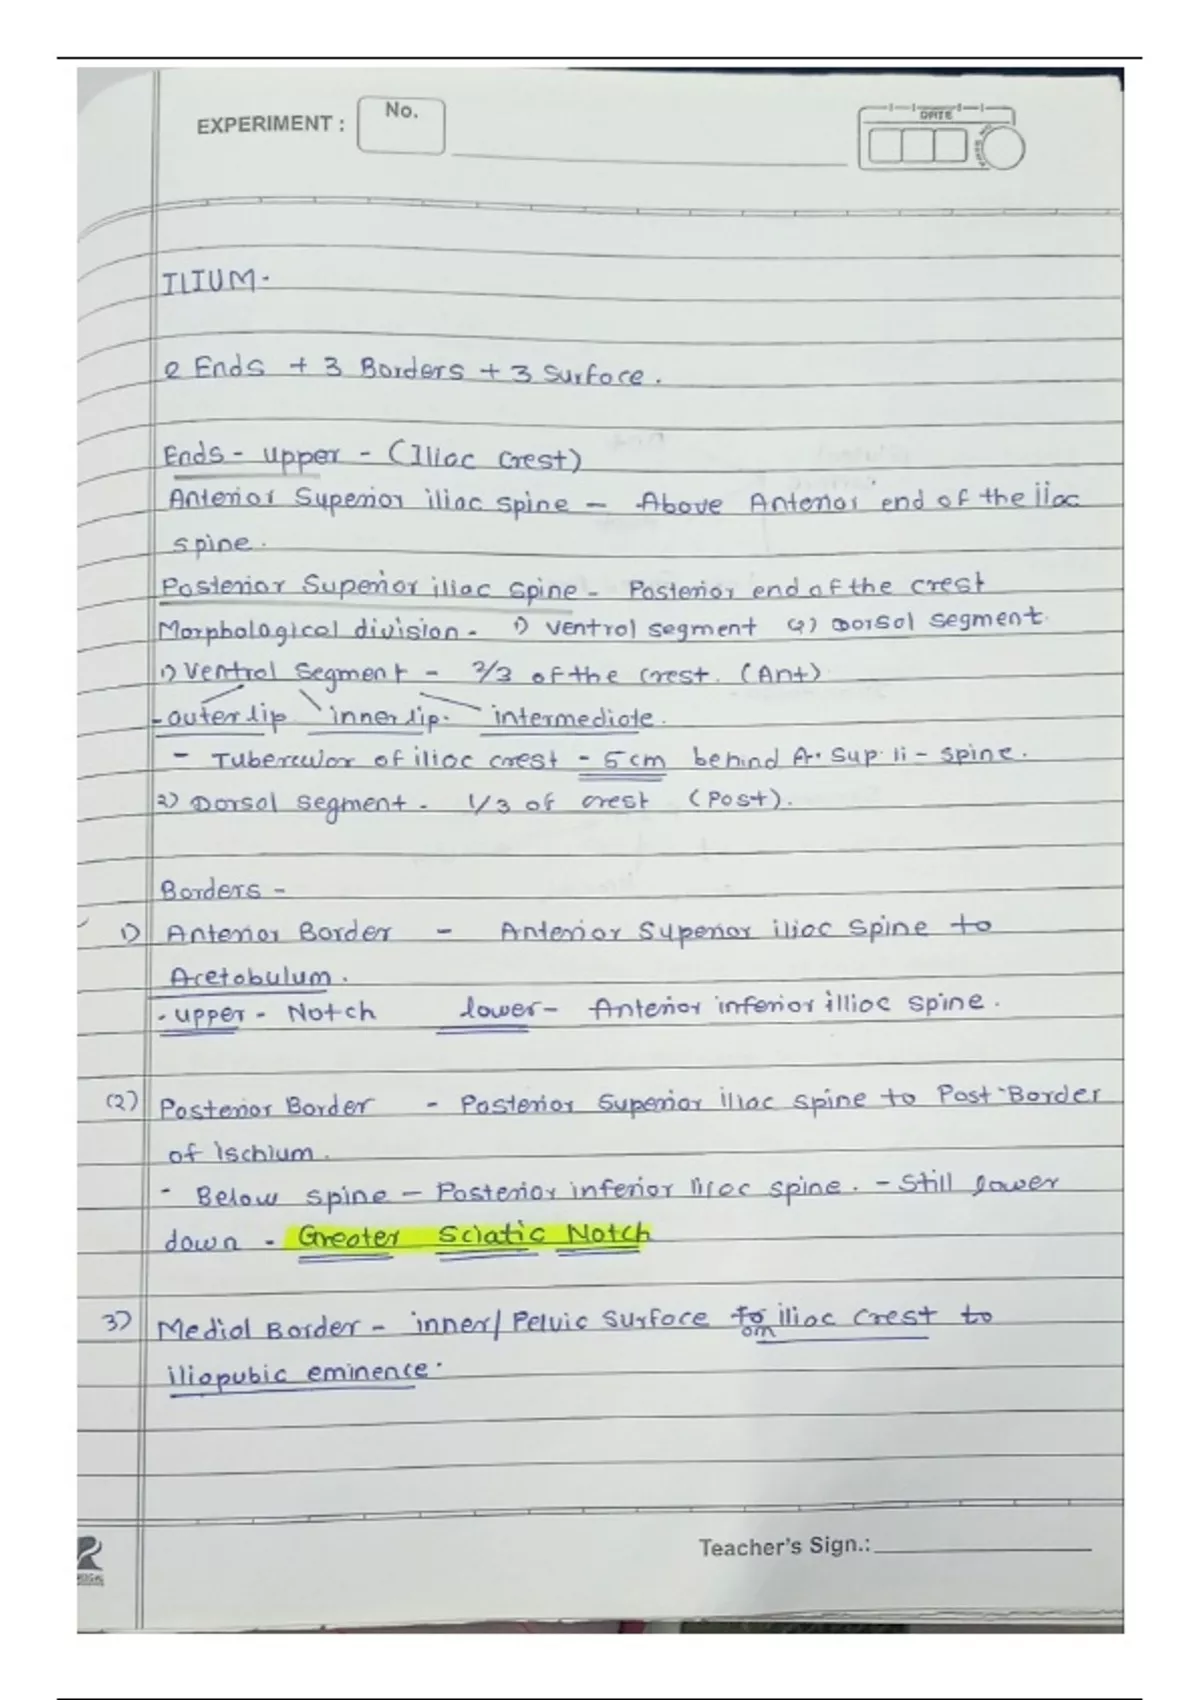 EXPERIMENT :
No.
DATE
ILIUM-
2 Ends + 3 Borders + 3 Surface.
Ends - upper - (Iliac Crest)
Anterior Superior iliac spine - Above Anterior end of the iiac
spine.
Posterior Superior iliac spine - Posterior end of the crest
Morphological division - 1) Ventral segment 2) Dorsal segment.
1) Ventral Segment - 2/3 of the crest. (Ant)
-outer lip inner lip. intermediate.
- Tubercular of iliac crest - 5cm behind A. Sup. Ii - spine.
2) Dorsal segment - 1/3 of crest (Post).
Borders -
1) Anterior Border - Anterior Superior iliac spine to
Acetabulum.
. upper - Notch lower - Anterior inferior illiac spine.
(2) Posterior Border - Posterior Superior iliac spine to Post-Border
of Ischium.
- Below spine - Posterior inferior iliac spine. - Still lower
down - Greater Sciatic Notch
3) Medial Border - inner/ Pelvic Surface iliac crest to
om
iliopubic eminence.
Teacher's Sign.: